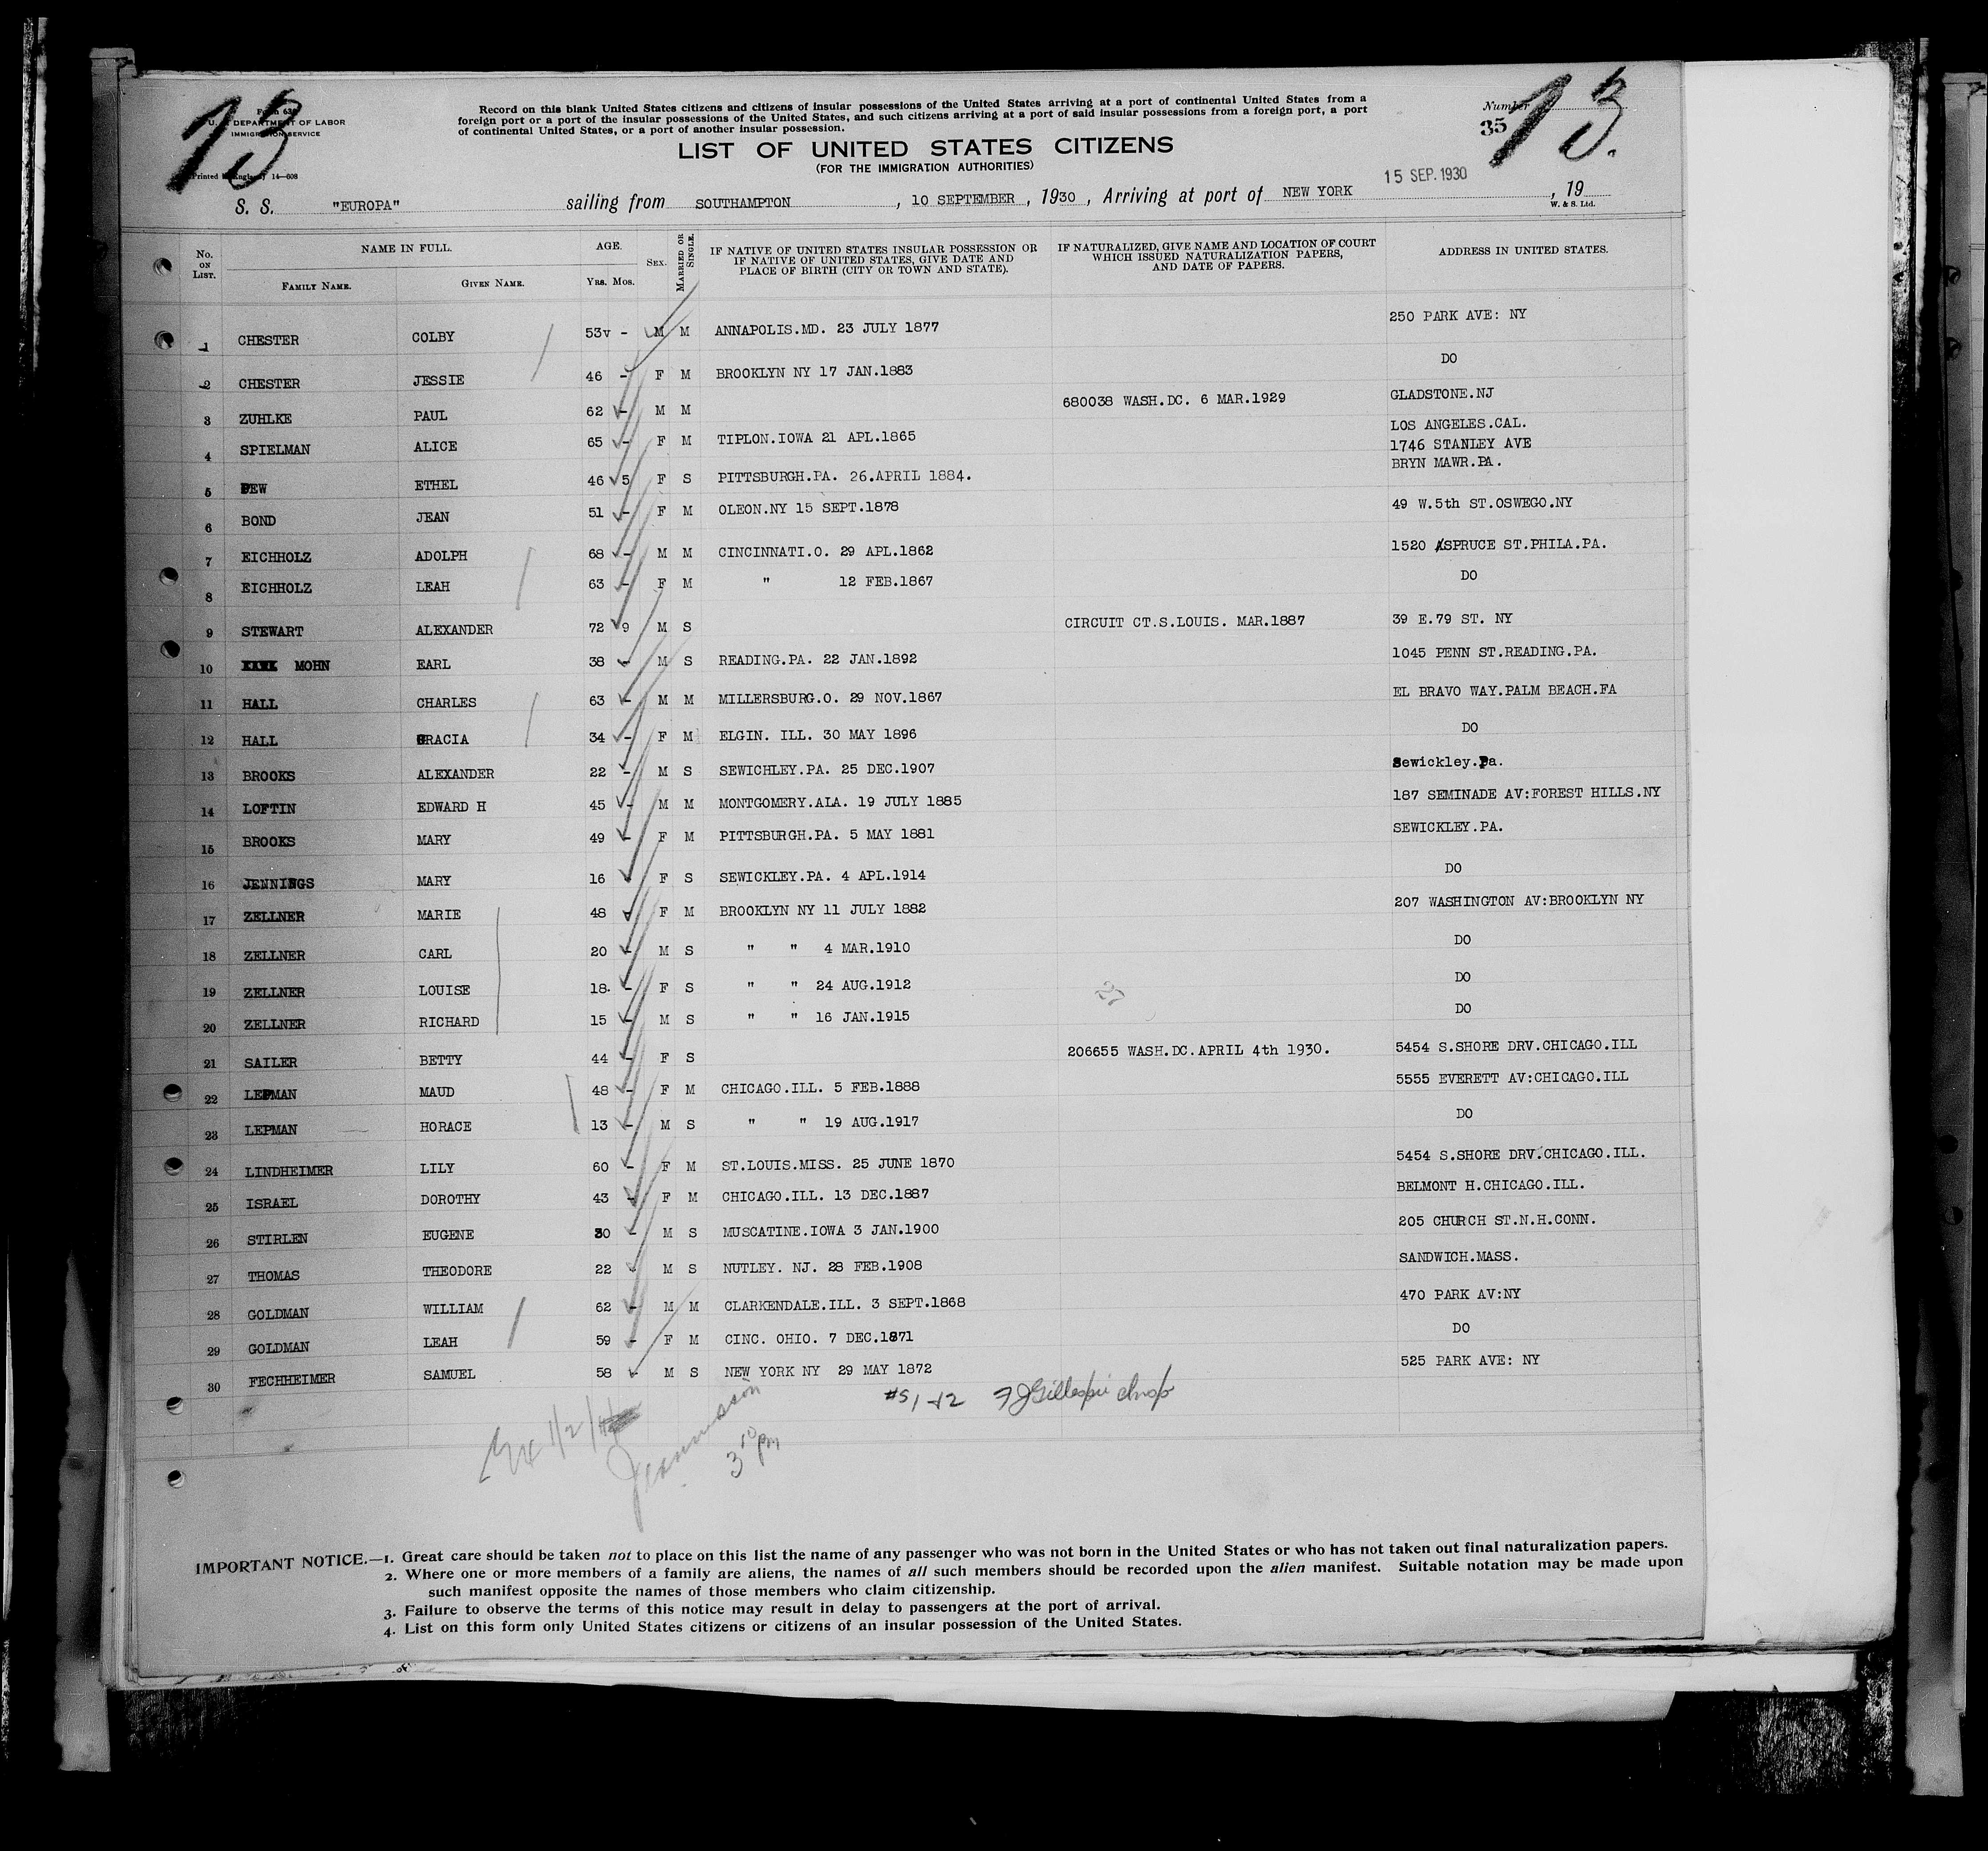 13
Form 63
U. S. DEPARTMENT OF LABOR
IMMIGRATION SERVICE
Printed in England 14—608
Record on this blank United States citizens and citizens of insular possessions of the United States arriving at a port of continental United States from a
foreign port or a port of the insular possessions of the United States, and such citizens arriving at a port of said insular possessions from a foreign port, a port
of continental United States, or a port of another insular possession.
Number
35
13.
LIST OF UNITED STATES CITIZENS
(FOR THE IMMIGRATION AUTHORITIES)
15 SEP. 1930
S. S. "EUROPA" sailing from SOUTHAMPTON, 10 SEPTEMBER, 1930, Arriving at port of NEW YORK, 19
W. & S. Ltd.
No. ON LIST. NAME IN FULL. AGE. SEX. MARRIED OR SINGLE. IF NATIVE OF UNITED STATES INSULAR POSSESSION OR IF NATIVE OF UNITED STATES, GIVE DATE AND PLACE OF BIRTH (CITY OR TOWN AND STATE). IF NATURALIZED, GIVE NAME AND LOCATION OF COURT WHICH ISSUED NATURALIZATION PAPERS, AND DATE OF PAPERS. ADDRESS IN UNITED STATES.
FAMILY NAME. GIVEN NAME. YRS. MOS.
1 CHESTER COLBY 53v - M M ANNAPOLIS.MD. 23 JULY 1877 250 PARK AVE: NY
2 CHESTER JESSIE 46 - F M BROOKLYN NY 17 JAN.1883 DO
3 ZUHLKE PAUL 62 - M M 680038 WASH.DC. 6 MAR.1929 GLADSTONE.NJ
4 SPIELMAN ALICE 65 - F M TIPLON.IOWA 21 APL.1865 LOS ANGELES.CAL.
1746 STANLEY AVE
5 DEW ETHEL 46 5 F S PITTSBURGH.PA. 26.APRIL 1884. BRYN MAWR.PA.
6 BOND JEAN 51 - F M OLEON.NY 15 SEPT.1878 49 W.5th ST.OSWEGO.NY
7 EICHHOLZ ADOLPH 68 - M M CINCINNATI.O. 29 APL.1862 1520 SPRUCE ST.PHILA.PA.
8 EICHHOLZ LEAH 63 - F M " 12 FEB.1867 DO
9 STEWART ALEXANDER 72 9 M S CIRCUIT CT.S.LOUIS. MAR.1887 39 E.79 ST. NY
10 MOHN EARL 38 - M S READING.PA. 22 JAN.1892 1045 PENN ST.READING.PA.
11 HALL CHARLES 63 - M M MILLERSBURG.O. 29 NOV.1867 EL BRAVO WAY.PALM BEACH.FA
12 HALL GRACIA 34 - F M ELGIN. ILL. 30 MAY 1896 DO
13 BROOKS ALEXANDER 22 - M S SEWICHLEY.PA. 25 DEC.1907 Sewickley.Pa.
14 LOFTIN EDWARD H 45 - M M MONTGOMERY.ALA. 19 JULY 1885 187 SEMINADE AV:FOREST HILLS.NY
15 BROOKS MARY 49 - F M PITTSBURGH.PA. 5 MAY 1881 SEWICKLEY.PA.
16 JENNINGS MARY 16 - F S SEWICKLEY.PA. 4 APL.1914 DO
17 ZELLNER MARIE 48 - F M BROOKLYN NY 11 JULY 1882 207 WASHINGTON AV:BROOKLYN NY
18 ZELLNER CARL 20 - M S " " 4 MAR.1910 DO
19 ZELLNER LOUISE 18. - F S " " 24 AUG.1912 DO
20 ZELLNER RICHARD 15 - M S " " 16 JAN.1915 DO
21 SAILER BETTY 44 - F S 206655 WASH.DC.APRIL 4th 1930. 5454 S.SHORE DRV.CHICAGO.ILL
22 LEPMAN MAUD 48 - F M CHICAGO.ILL. 5 FEB.1888 5555 EVERETT AV:CHICAGO.ILL
23 LEPMAN HORACE 13 - M S " " 19 AUG.1917 DO
24 LINDHEIMER LILY 60 - F M ST.LOUIS.MISS. 25 JUNE 1870 5454 S.SHORE DRV.CHICAGO.ILL.
25 ISRAEL DOROTHY 43 - F M CHICAGO.ILL. 13 DEC.1887 BELMONT H.CHICAGO.ILL.
26 STIRLEN EUGENE 30 - M S MUSCATINE.IOWA 3 JAN.1900 205 CHURCH ST.N.H.CONN.
27 THOMAS THEODORE 22 M S NUTLEY. NJ. 28 FEB.1908 SANDWICH.MASS.
28 GOLDMAN WILLIAM 62 - M M CLARKENDALE.ILL. 3 SEPT.1868 470 PARK AV:NY
29 GOLDMAN LEAH 59 - F M CINC. OHIO. 7 DEC.1871 DO
30 FECHHEIMER SAMUEL 58 - M S NEW YORK NY 29 MAY 1872 525 PARK AVE: NY
FJGillespie
3 10 pm
IMPORTANT NOTICE.—1. Great care should be taken not to place on this list the name of any passenger who was not born in the United States or who has not taken out final naturalization papers.
2. Where one or more members of a family are aliens, the names of all such members should be recorded upon the alien manifest. Suitable notation may be made upon
such manifest opposite the names of those members who claim citizenship.
3. Failure to observe the terms of this notice may result in delay to passengers at the port of arrival.
4. List on this form only United States citizens or citizens of an insular possession of the United States.